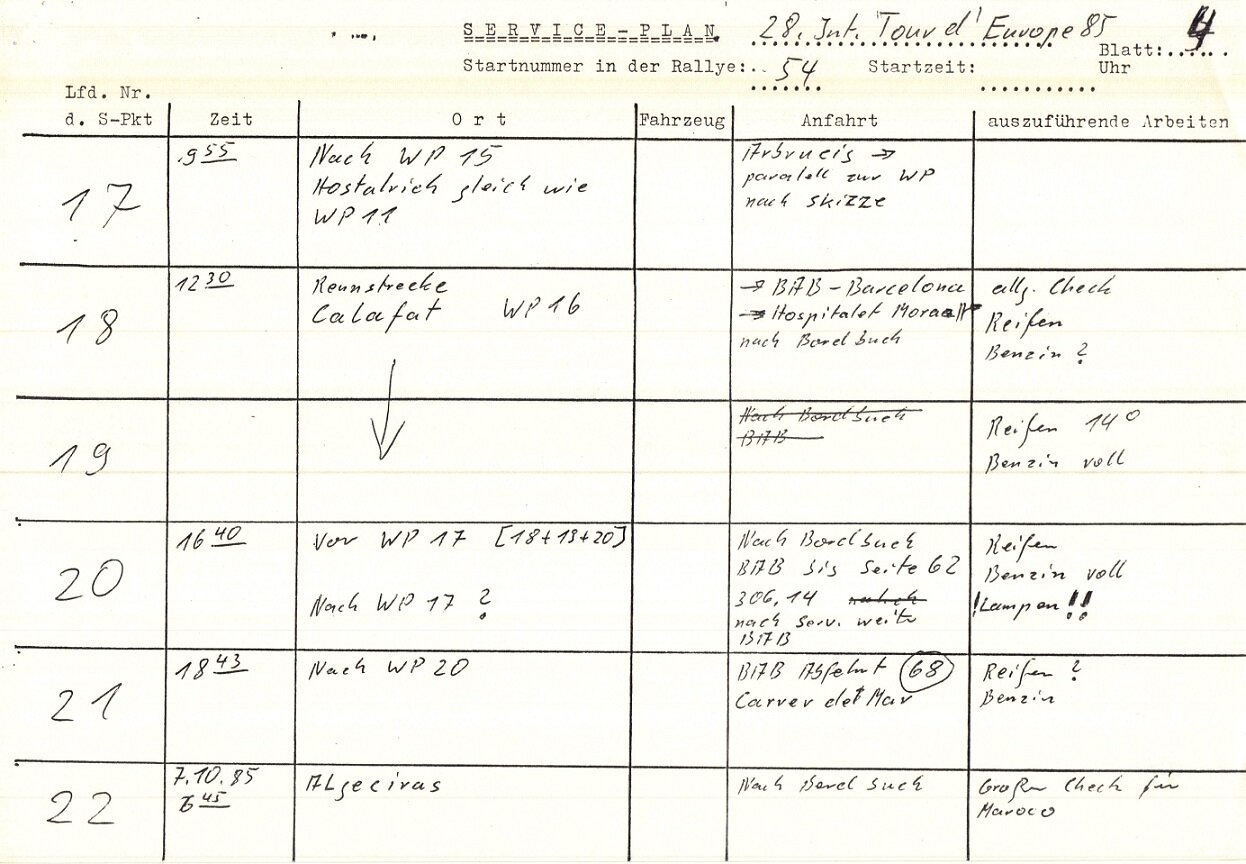 SERVICE-PLAN 28. Int. Tour d' Europe 85
Blatt: 4
Startnummer in der Rallye: 54 Startzeit: Uhr
Lfd. Nr.
d. S-Pkt Zeit Ort Fahrzeug Anfahrt auszuführende Arbeiten
17
9 55
Nach WP 15
Hostalrich gleich wie
WP 11
Arbrucis →
paralell zur WP
nach Skizze
18
12 30
Rennstrecke
Calafat WP 16
→ BAB - Barcelona
→ Hospitalet
nach Bordbuch
allg. Check
Reifen
Benzin ?
19
Nach Bordbuch
BAB
Reifen 14°
Benzin voll
20
16 40
Vor WP 17 [18+19+20]
Nach WP 17 ?
Nach Bordbuch
BAB bis Seite 62
306,14
nach Serv. weiter
BAB
Reifen
Benzin voll
! Lampen !!
21
18 43
Nach WP 20
BAB Abfahrt 68
Carrer del Mar
Reifen ?
Benzin
22
7.10.85
6 45
ALgeciras
Nach Bordbuch
Großer Check für
Maroco